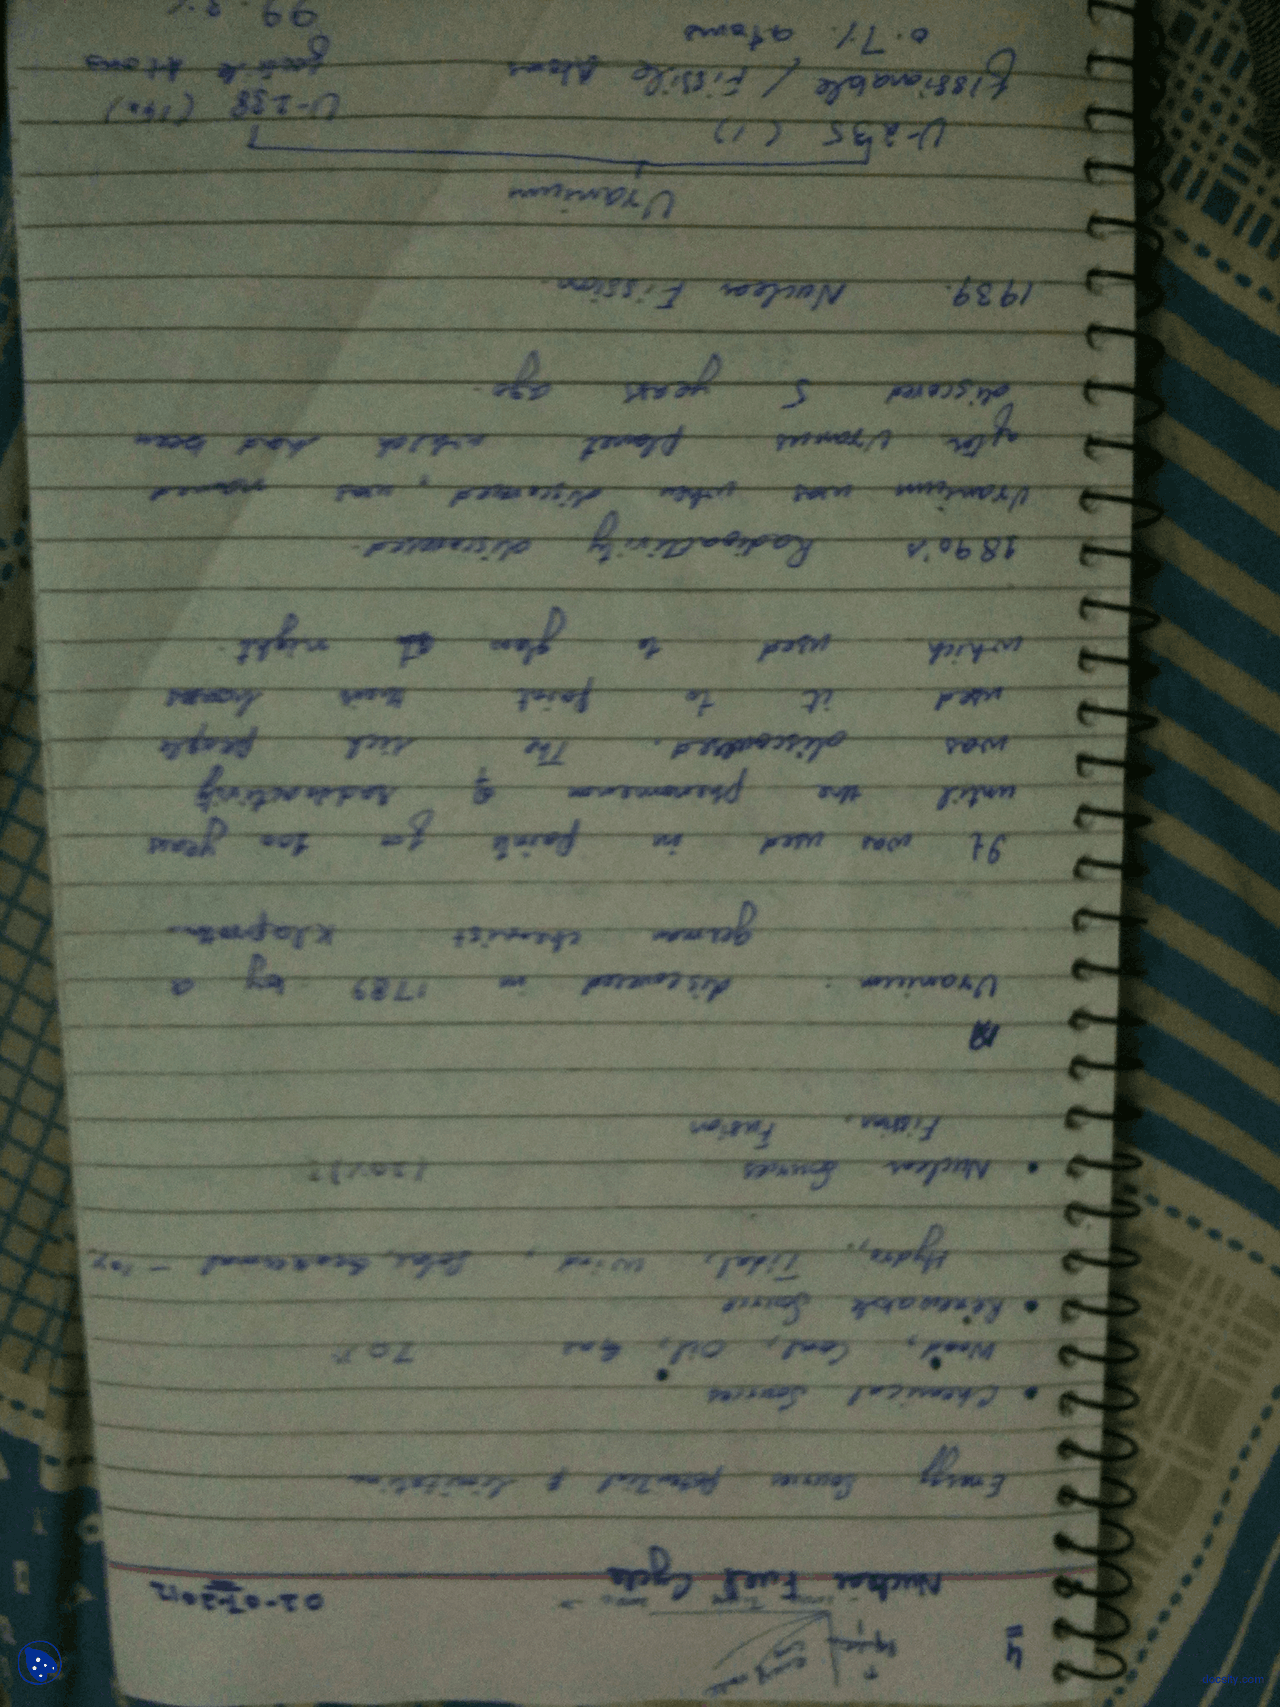 4
Nuclear Fuel Cycle
02-07-2012
Energy Source potential & limitation
• Chemical Sources
Wood, Coal, Oil, Gas 70%
• Renewable Source
Hydro, Tidal, Wind, Solar, Geothermal - 10%
• Nuclear Sources (20%)?
Fission, Fusion
Uranium : discovered in 1789 by a
german chemist Klaproth.
It was used in paints for 100 years
until the phenomenon of Radioactivity
was discovered. The rich people
used it to paint their houses
which used to glow at night.
1890's Radioactivity discovered.
Uranium was when discovered, was named
after Uranus planet which had been
discoved 5 years ago.
1939. Nuclear Fission.
Uranium
U-235 (1) U-238 (140)
fissionable / Fissile Atoms fertile Atoms
0.7% atoms 99.3%